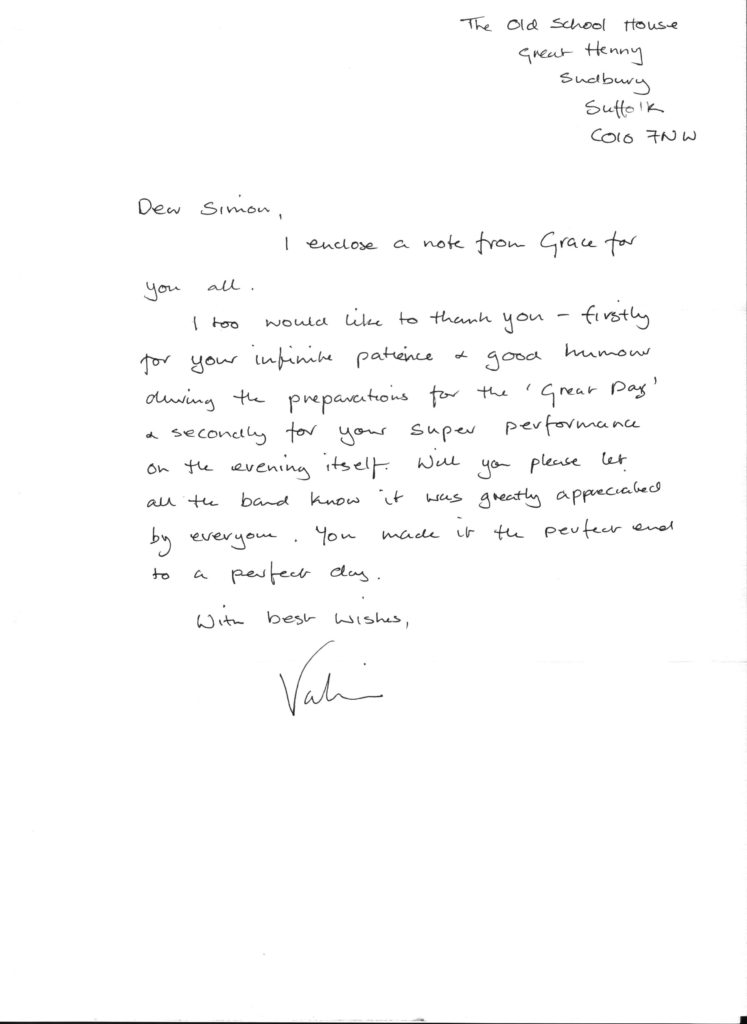 The Old School House
Great Henny
Sudbury
Suffolk
CO10 7NW
Dear Simon,
I enclose a note from Grace for
you all.
I too would like to thank you - firstly
for your infinite patience & good humour
during the preparations for the 'Great Day'
& secondly for your super performance
on the evening itself. Will you please let
all the band know it was greatly appreciated
by everyone. You made it the perfect end
to a perfect day.
With best wishes,